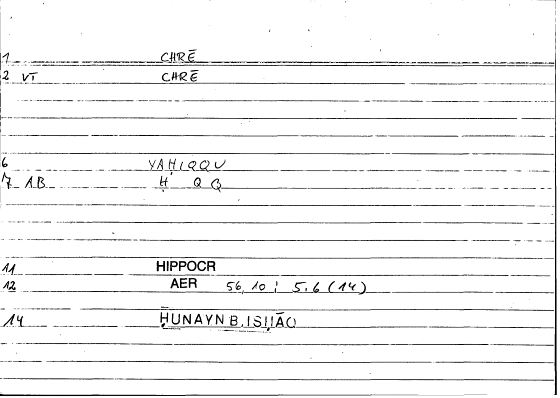 1 CHRĒ
2 VT CHRĒ
6 YAḤIQQU
7 AB Ḥ Q Q
11 HIPPOCR
12 AER 56,10 ; 5.6 (14)
14 ḤUNAYN B. ISḤĀQ